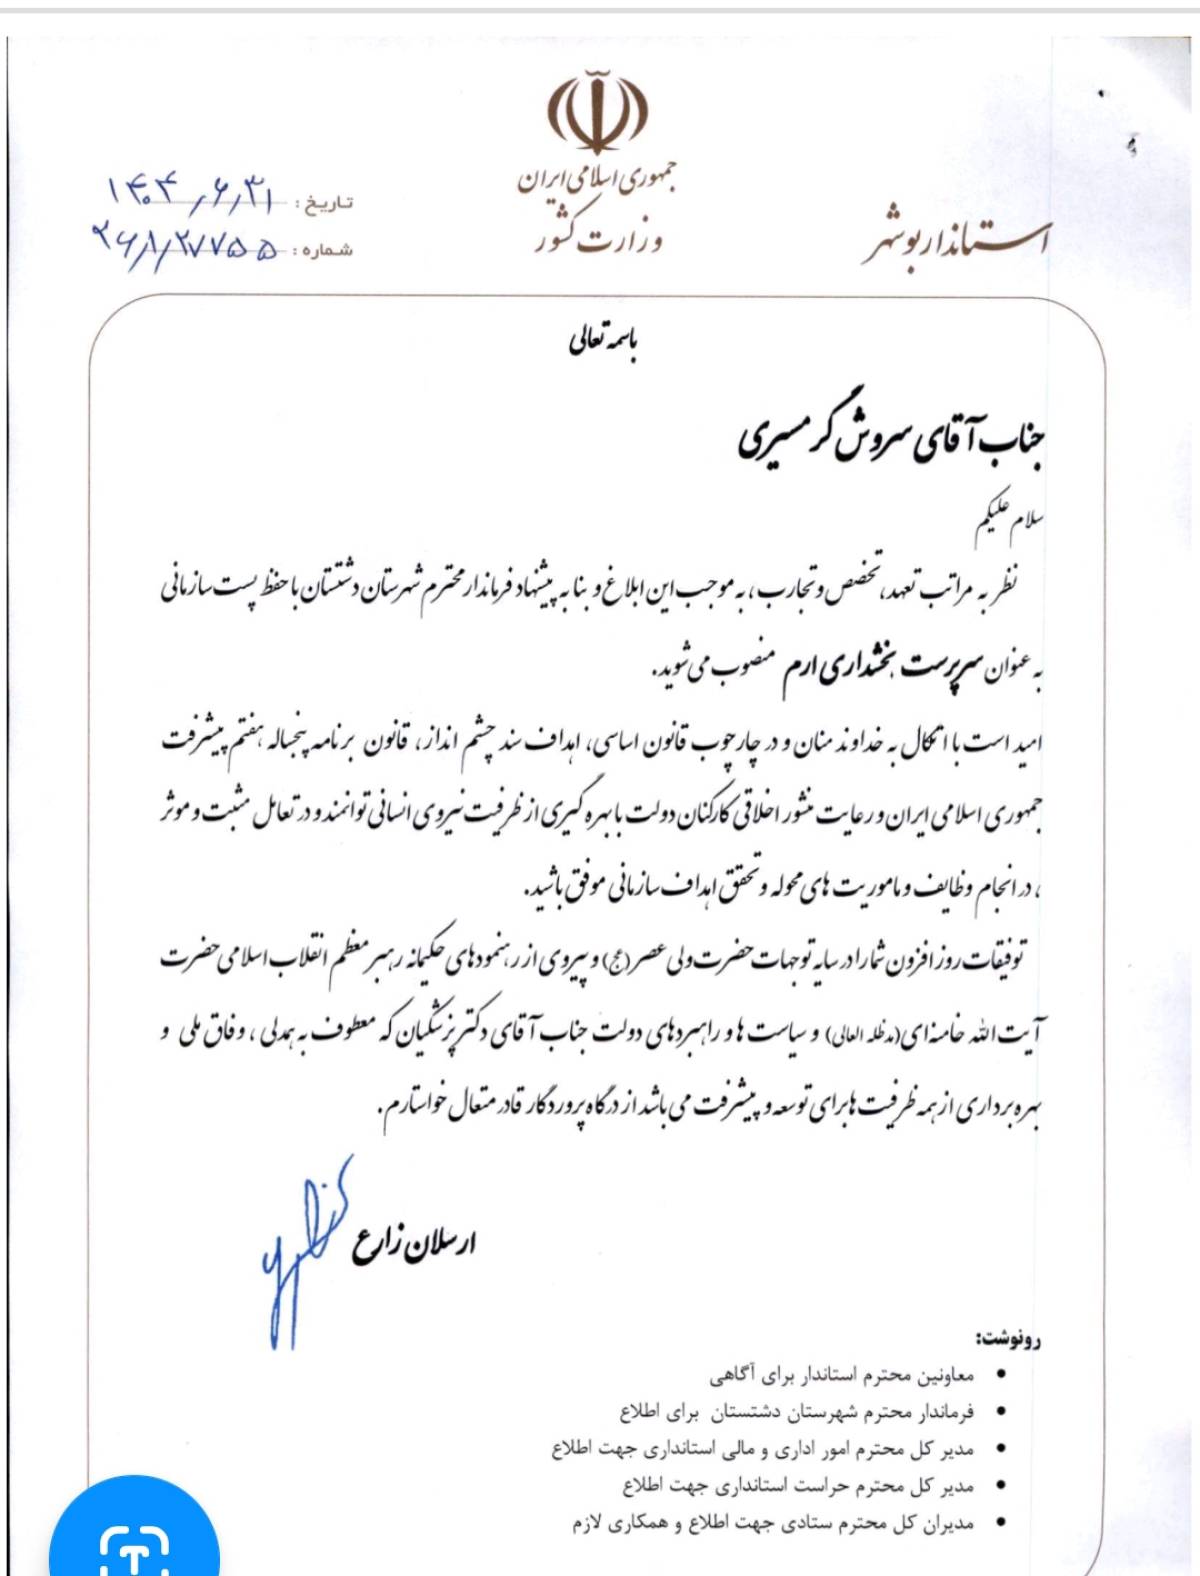 جمهوری اسلامی ایران
وزارت کشور
استاندار بوشهر
تاریخ: ۱۴۰۴٫۶٫۳۱
شماره: ۲۶/۱/۲۷۷۵۵
باسمه تعالی
جناب آقای سروش گرمسیری
سلام علیکم
نظر به مراتب تعهد، تخصص و تجارب، به موجب این ابلاغ و بنا به پیشنهاد فرماندار محترم شهرستان دشتستان با حفظ پست سازمانی
به عنوان سرپرست بخشداری ارم منصوب می شوید.
امید است با اتکال به خداوند منان و در چارچوب قانون اساسی، اهداف سند چشم انداز، قانون برنامه پنجساله هفتم پیشرفت
جمهوری اسلامی ایران و رعایت منشور اخلاقی کارکنان دولت با بهره گیری از ظرفیت نیروی انسانی توانمند و در تعامل مثبت و موثر
، در انجام وظایف و ماموریت های محوله و تحقق اهداف سازمانی موفق باشید.
توفیقات روز افزون شما را در سایه توجهات حضرت ولی عصر (عج) و پیروی از رهنمودهای حکیمانه رهبر معظم انقلاب اسلامی حضرت
آیت الله خامنه ای (مدظله العالی) و سیاست ها و راهبردهای دولت جناب آقای دکتر پزشکیان که معطوف به همدلی، وفاق ملی و
بهره برداری از همه ظرفیت ها برای توسعه و پیشرفت می باشد از درگاه پروردگار قادر متعال خواستارم.
ارسلان زارع
رونوشت:
• معاونین محترم استاندار برای آگاهی
• فرماندار محترم شهرستان دشتستان برای اطلاع
• مدیر کل محترم امور اداری و مالی استانداری جهت اطلاع
• مدیر کل محترم حراست استانداری جهت اطلاع
• مدیران کل محترم ستادی جهت اطلاع و همکاری لازم